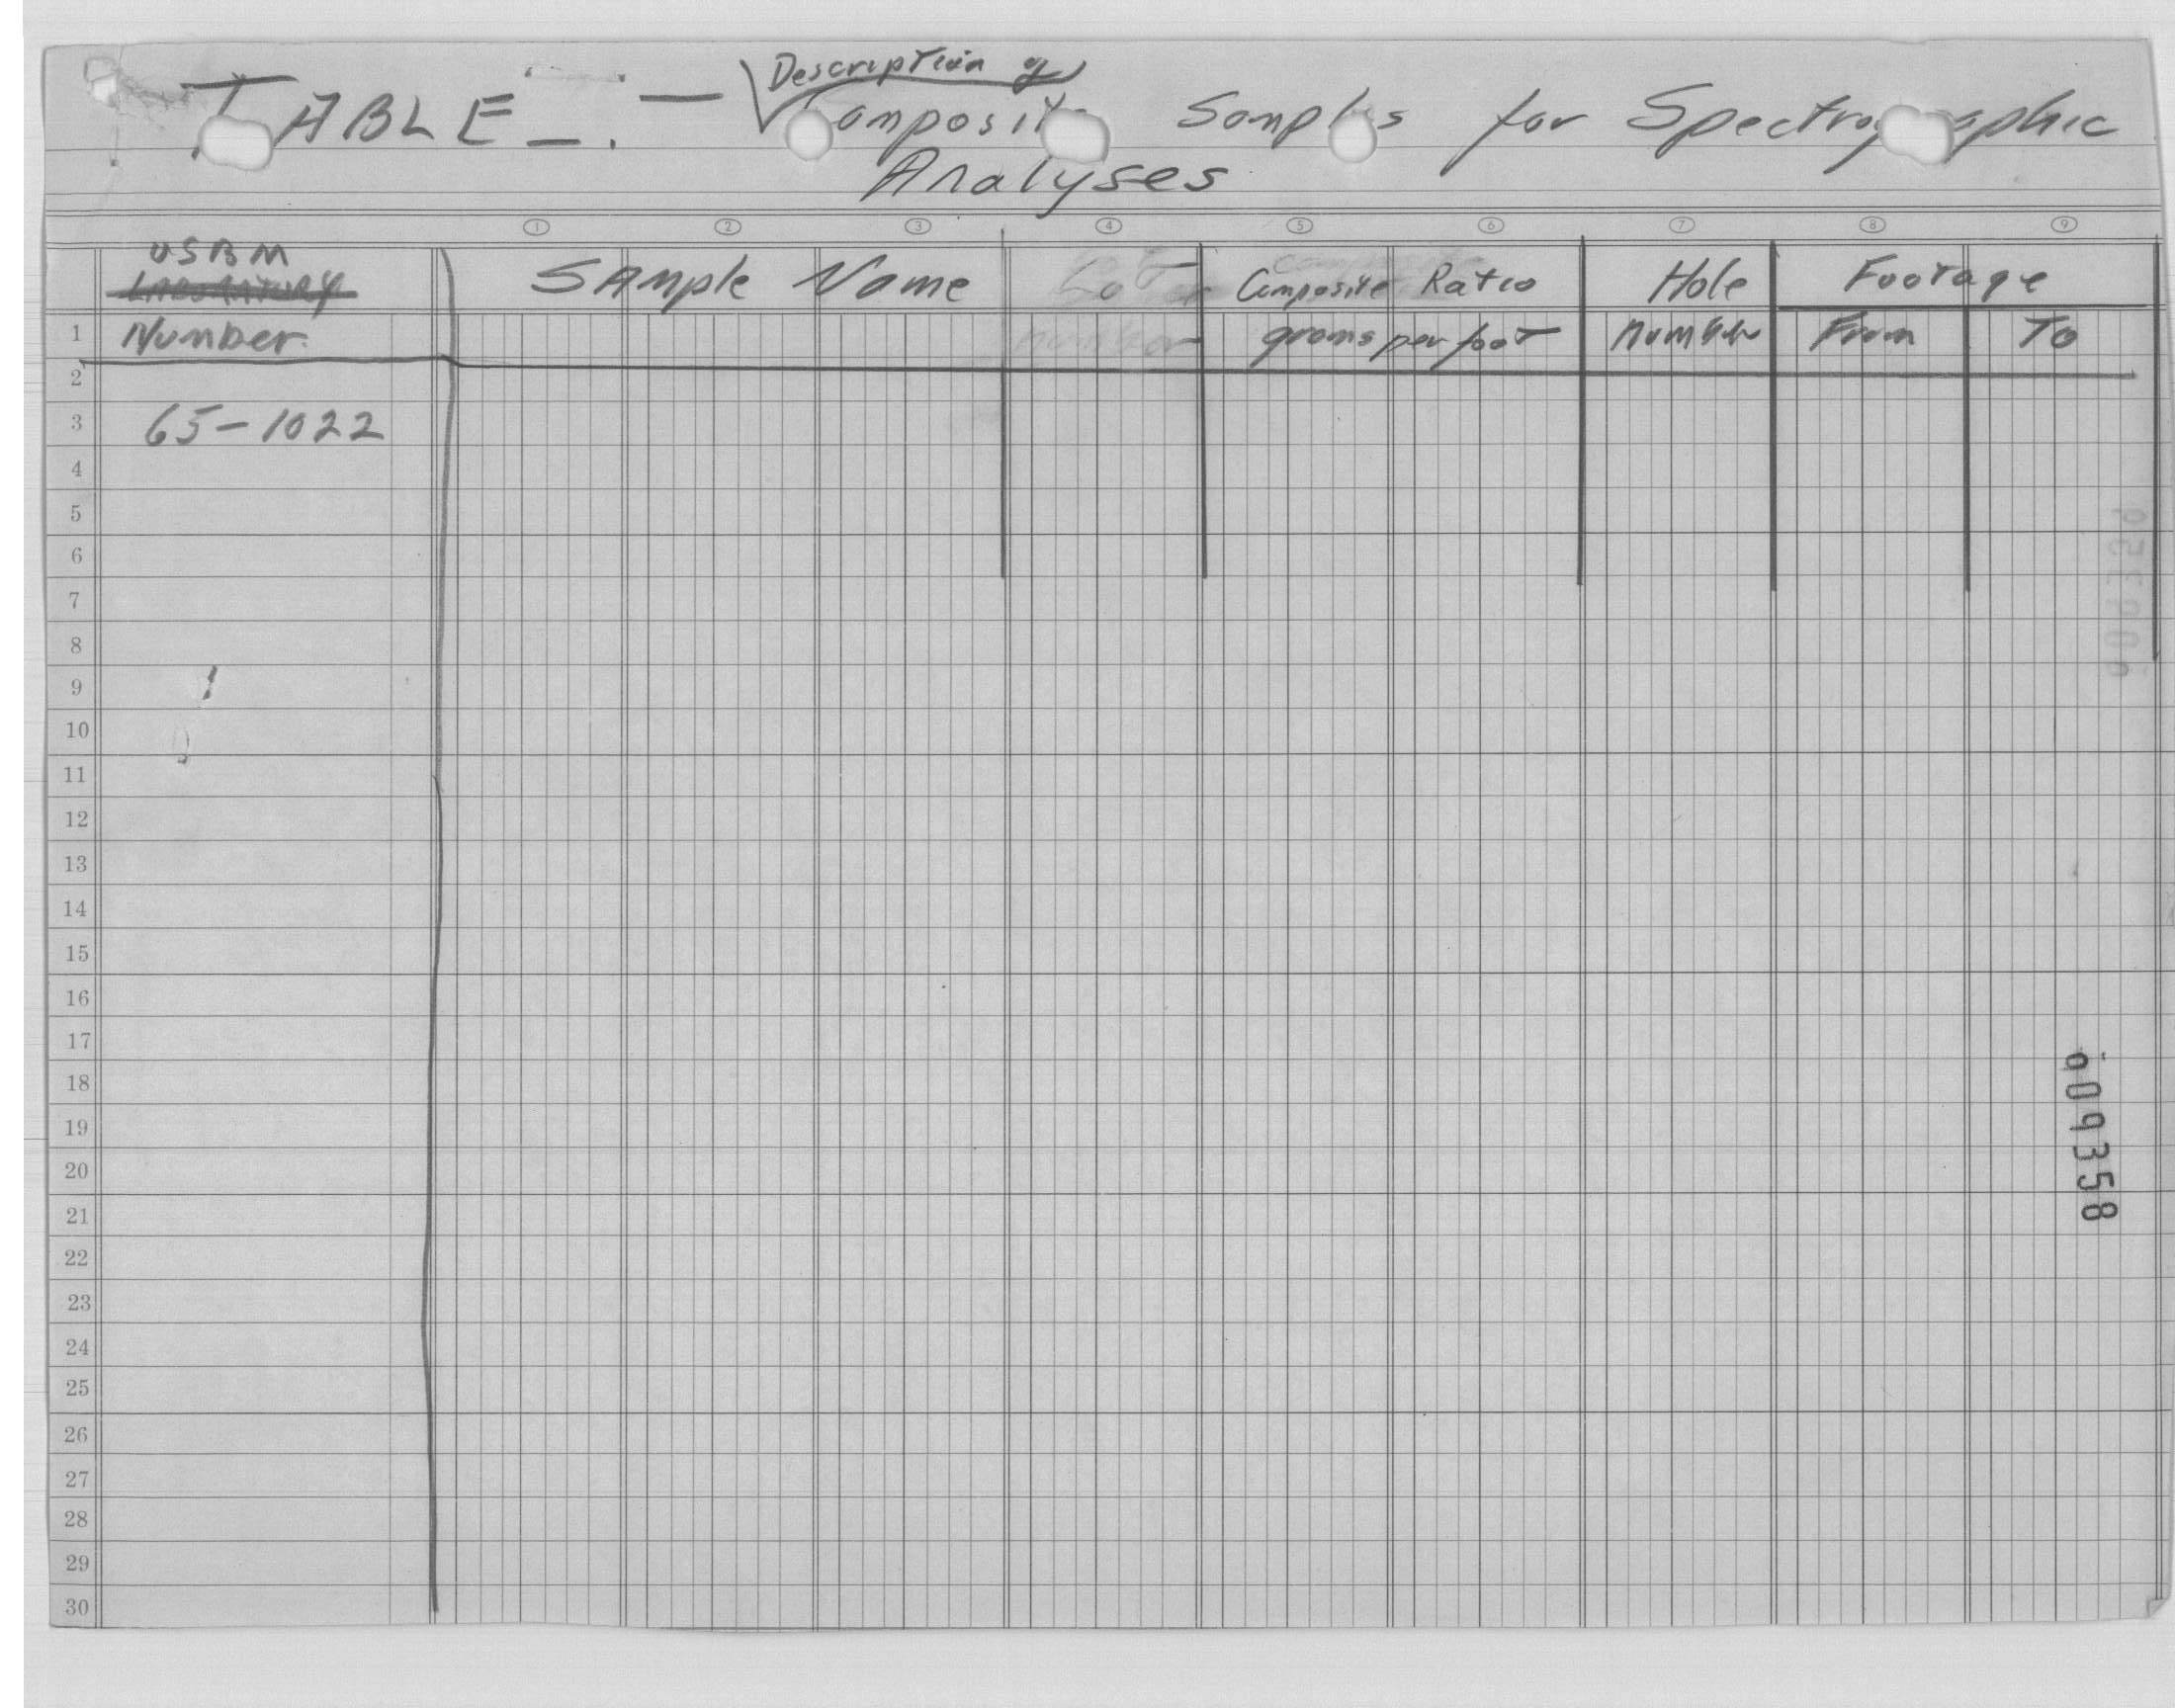 Description of
TABLE _. — Composite Samples for Spectrographic
Analyses
1 2 3 4 5 6 7 8 9
USBM
LABORATORY Sample Name Composite Ratio Hole Footage
1 Number grams per foot number From To
2
3 65-1022
4
5
6
7
8
9
10
11
12
13
14
15
16
17
18
19
20
21
22
23
24
25
26
27
28
29
30
009358